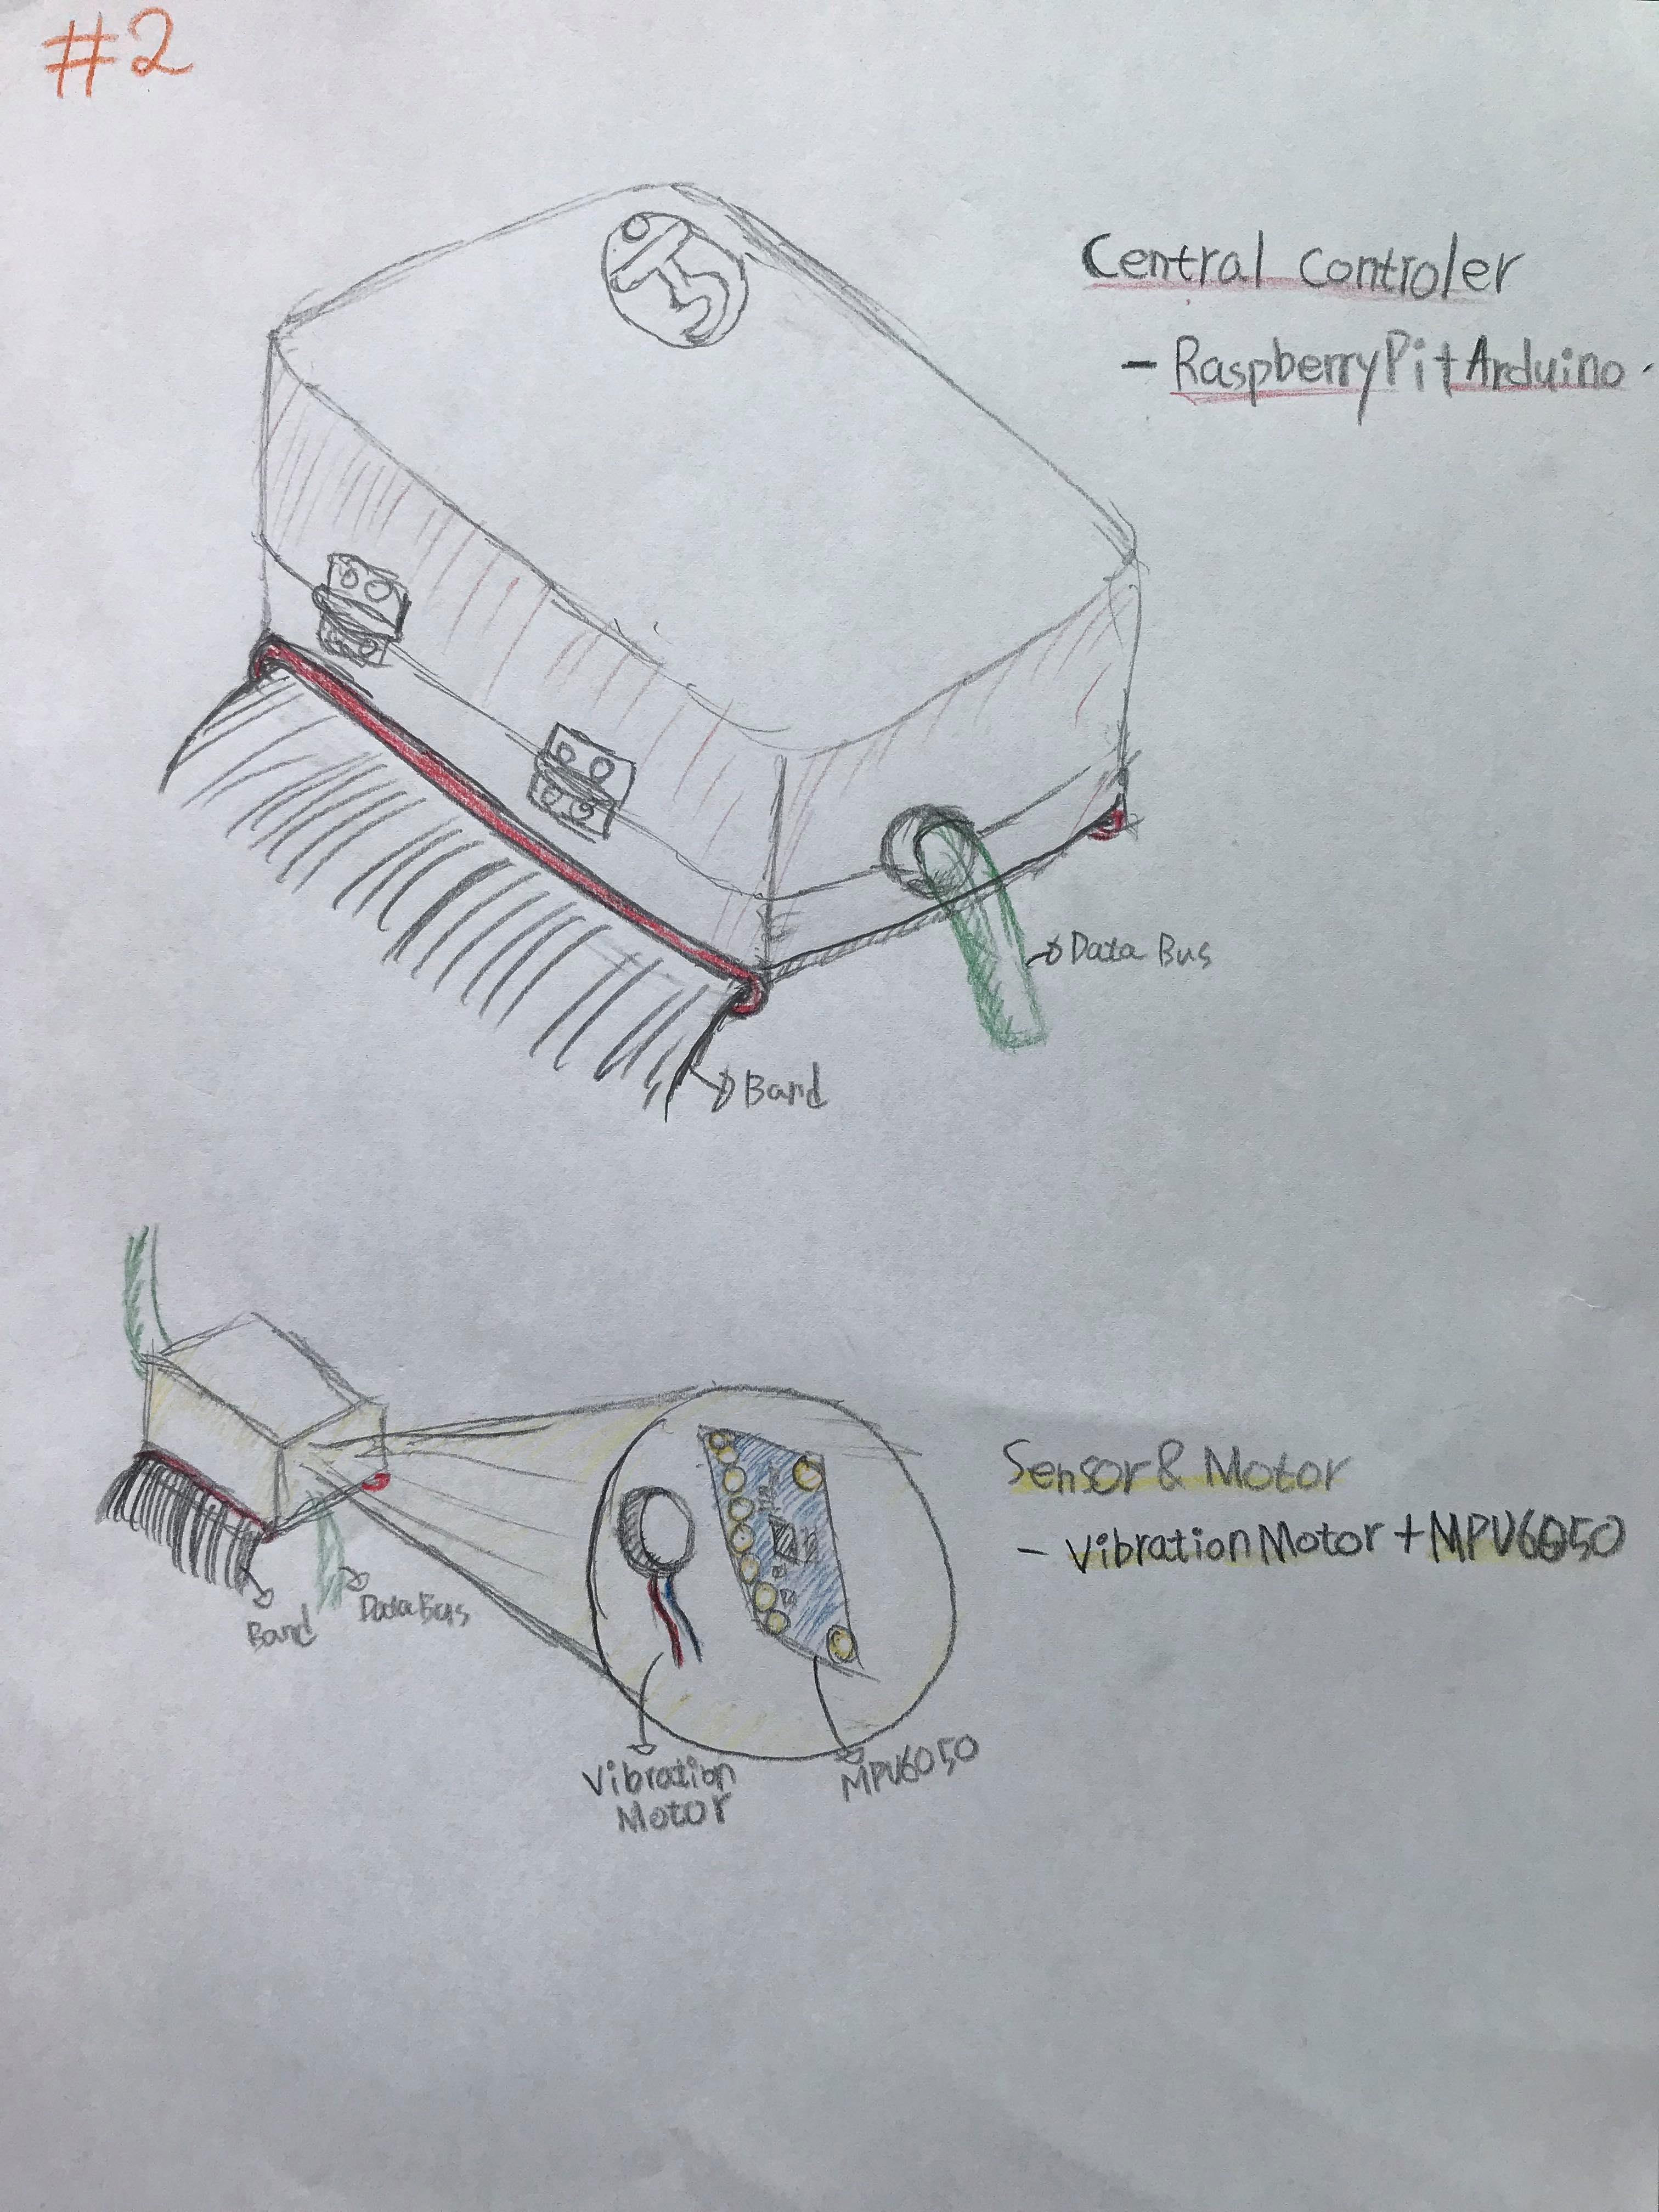 #2
Central Controler
- RaspberryPi+Arduino.
Data Bus
Band
Sensor & Motor
- Vibration Motor + MPU6050
Band
Data Bus
Vibration
Motor
MPU6050